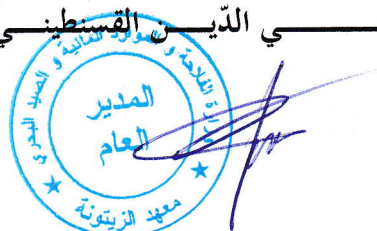 ـي الدّيـــن القسنطينـــي
وزارة الفلاحة و الموارد المائية و الصيد البحري
المدير
العام
معهد الزيتونة